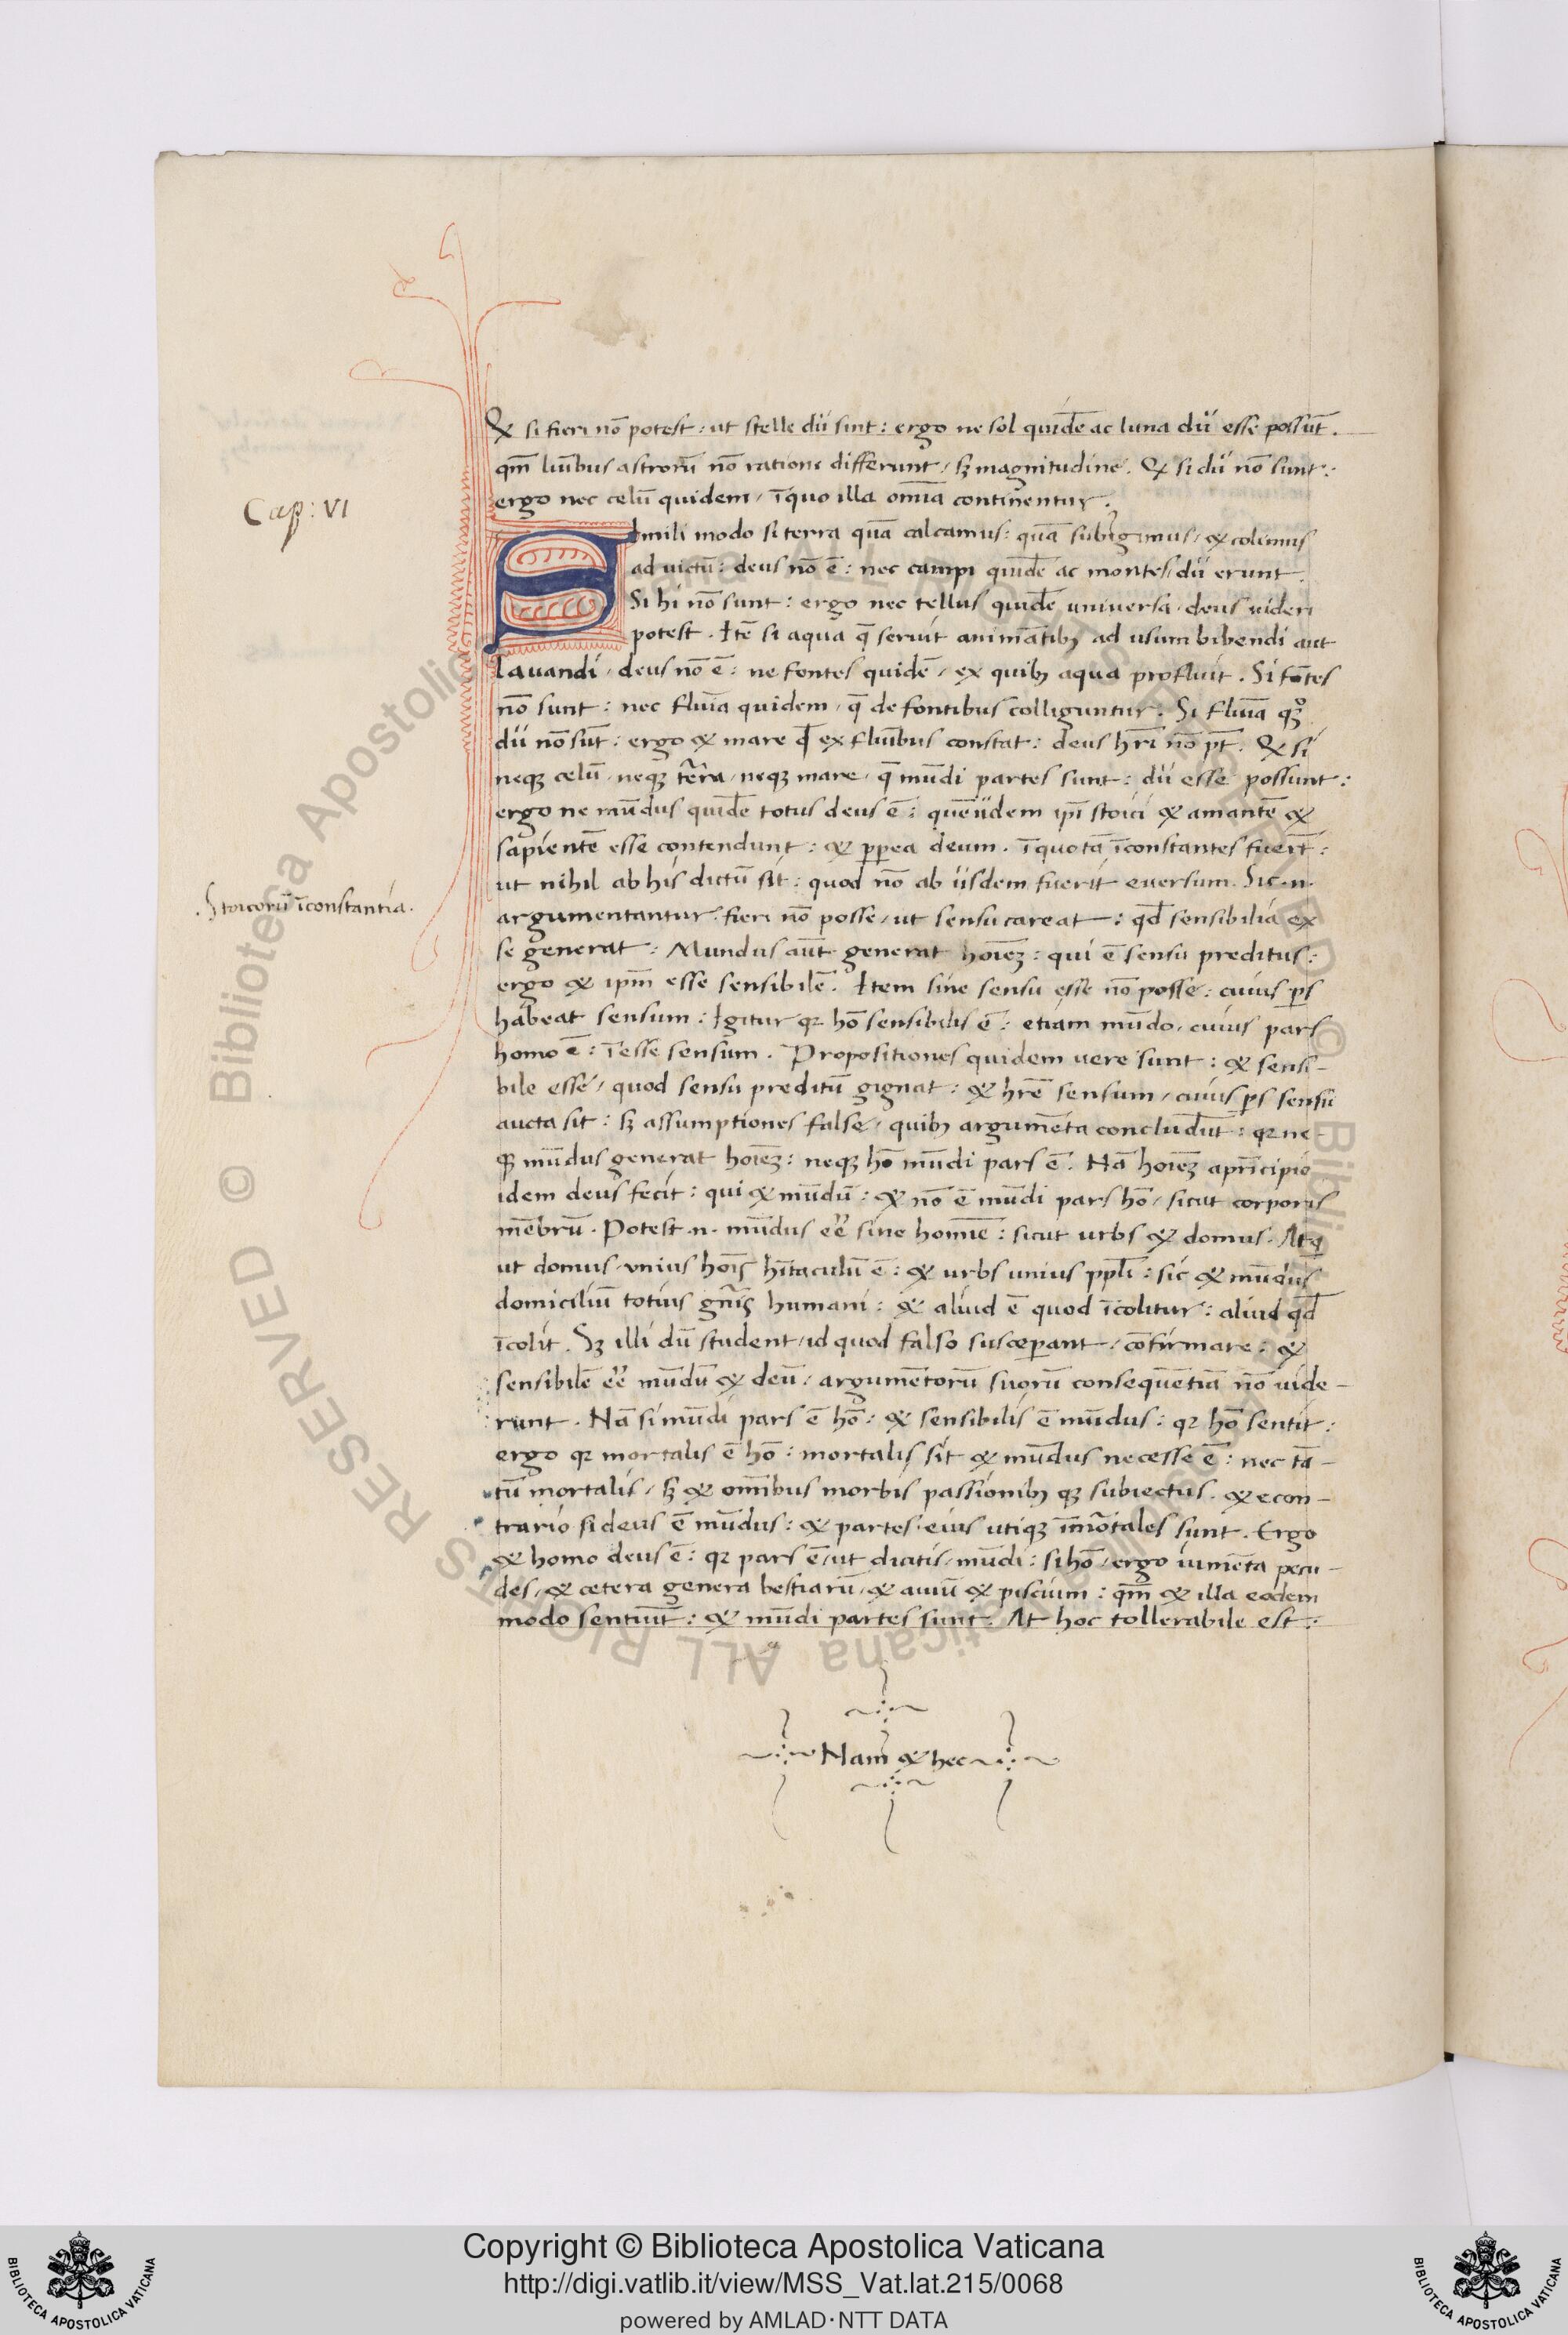 & si fieri nō potest : ut stelle dii sint : ergo ne sol quidē ac luna dii esse possūt .
qm̄ luībus astrorū nō ratione differunt / sꝫ magnitudine . & si dii nō sunt :
ergo nec celū quidem / īquo illa om̄ia continentur .
Cap : VI
Simili modo si terra quā calcamus : quā subigimus / & colimus
ad victū : deus nō ē : nec campi quidē ac montes / dii erunt .
Si hi nō sunt : ergo nec tellus quidē universa / deus uideri
potest . Itē si aqua q̄ seruit animātibꝫ ad usum bibendi aut
lauandi / deus nō ē : ne fontes quidē / ex quibꝫ aqua profluit . Si fōtes
nō sunt : nec fluīa quidem / q̄ de fontibus colliguntur . Si fluīa qꝫ
dii nō sūt : ergo & mare qd̄ ex fluībus constat : deus hr̄i nō pt̄ . & si
neqꝫ celū / neqꝫ tēra / neqꝫ mare / q̄ mūdi partes sunt : dii esse possunt :
ergo ne mūdus quidē totus deus ē : quē iidem ip̄i stoici & amantē &
sapientē esse contendunt : & ꝓpea deum . īquo tā īconstantes fuerūt :
ut nihil ab his dictū sit : quod nō ab iisdem fuerit euersum . Sic .n.
.Stoicorū īconstantia .
argumentantur . fieri nō posse / ut sensu careat : qd̄ sensibilia ex
se generat : Mundus aūt generat hoīeꝫ : qui ē sensu preditus :
ergo & ipm̄ esse sensibilē . Item sine sensu esse nō posse : cuius ꝑs
habeat sensum : Igitur qꝛ hō sensibilis ē : etiam mūdo / cuius pars
homo ē : īesse sensum . Propositiones quidem uere sunt : & sensi-
bile esse / quod sensu preditū gignat : & hr̄e sensum / cuius ꝑs sensu
aucta sit : sꝫ assumptiones false / quibꝫ argumēta concludūt : qꝛ ne-
qꝫ mūdus generat hoīeꝫ : neqꝫ hō mūdi pars ē . Nā hoīeꝫ aprīcipio
idem deus fecit : qui & mūdū : & nō ē mūdi pars hō / sicut corporis
mēbrū . Potest .n. mūdus eē sine homīe : sicut urbs & domus . Atq
ut domus / unius hoīs hītaculū ē : & urbs unius ppl̄i : sic & mūdus
domiciliū totius gn̄is humani : & aliud ē quod īcolitur : aliud qd̄
īcolit . Sꝫ illi dū student / id quod falso susceperant / cōfirmare : &
sensibilē eē mūdū & deū / argumētorū suorū consequētiā nō uide-
runt . Nā si mūdi pars ē hō : & sensibilis ē mūdus : qꝛ hō sentit :
ergo qꝛ mortalis ē hō : mortalis sit & mūdus necesse ē : nec tā-
tū mortalis / sꝫ & om̄ibus morbis passionibꝫ qꝫ subiectus . & econ-
trario si deus ē mūdus : & partes eius utiqꝫ īmōtales sunt . Ergo
& homo deus ē : qꝛ pars ē / ut dicitis / mūdi : si hō / ergo iumēta pecu-
des / & cetera genera bestiarū / & auiū & piscium : qm̄ & illa eodem
modo sentiūt : & mūdi partes sunt . At hoc tollerabile est :
Nam & hec
© Biblioteca Apostolica Vaticana ALL RIGHTS RESERVED
Copyright © Biblioteca Apostolica Vaticana
http://digi.vatlib.it/view/MSS_Vat.lat.215/0068
powered by AMLAD·NTT DATA
BIBLIOTECA APOSTOLICA VATICANA
BIBLIOTECA APOSTOLICA VATICANA